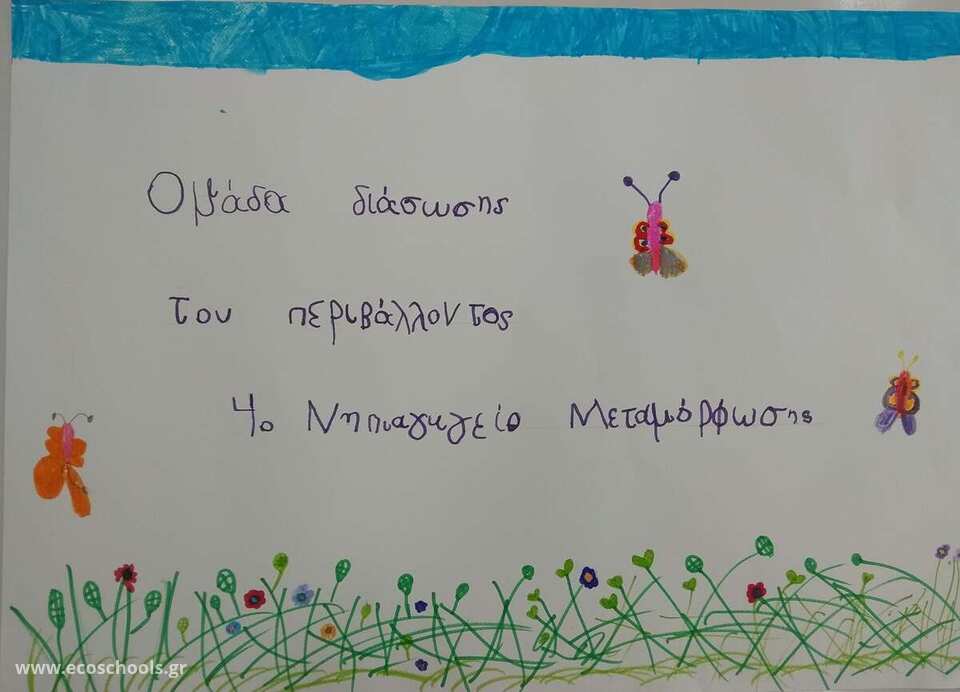 Ομάδα διάσωσης
του περιβάλλοντος
4ο Νηπιαγωγείο Μεταμόρφωσης
www.ecoschools.gr